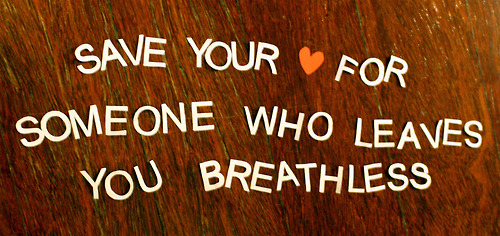 SAVE YOUR ♥ FOR
SOMEONE WHO LEAVES
YOU BREATHLESS